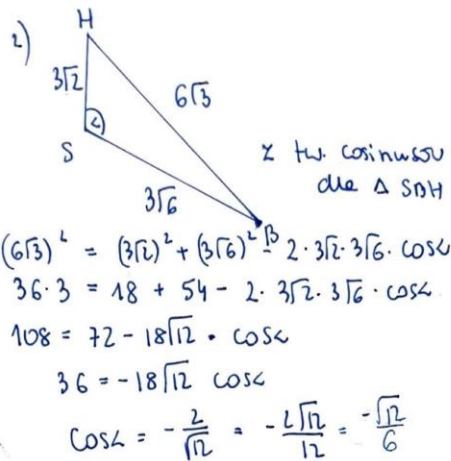 2)
H
3√2
6√3
α
S
3√6
B
z tw. cosinusów
dla Δ SBH
(6√3)² = (3√2)² + (3√6)² - 2·3√2·3√6·cosα
36·3 = 18 + 54 - 2·3√2·3√6·cosα
108 = 72 - 18√12 · cosα
36 = -18√12 cosα
cosα = -2/√12 = -2√12/12 = -√12/6